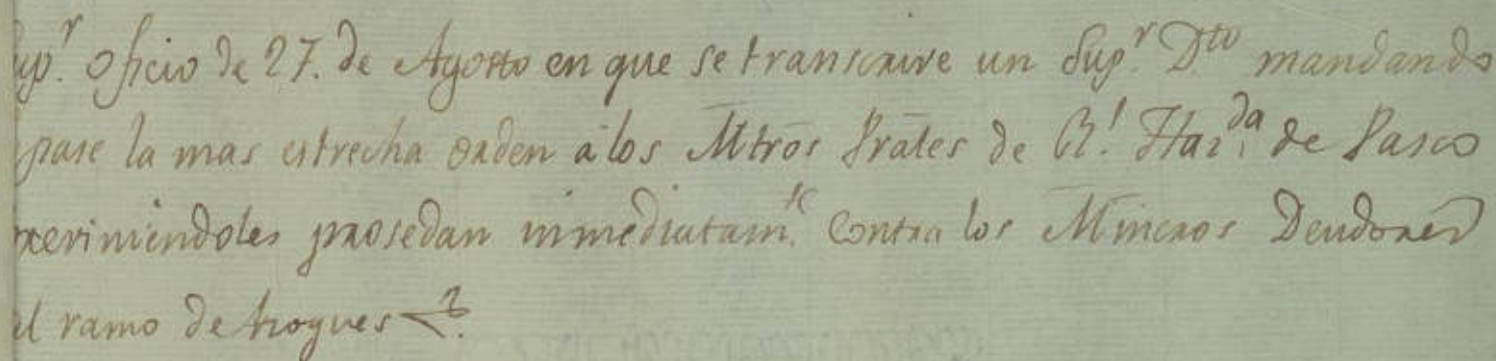 Sup.r oficio de 27. de Agosto en que se transcrive un Sup.r D.to mandando
pase la mas estrecha orden á los Mtros Prâles de Rl. Haz.da de Pasco
previniendoles prosedan inmediatam.te contra los Mineros Deudores
al ramo de Asogues